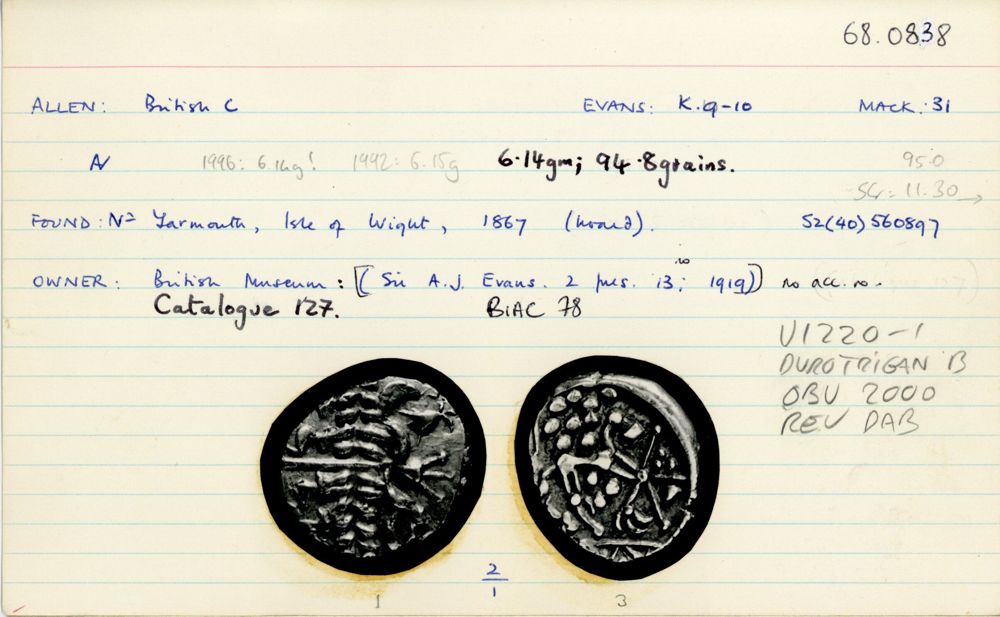 68.0838
ALLEN: British C EVANS: K.9-10 MACK: 31
AV 1996: 6.14g! 1992: 6.15g 6.14gm; 94.8grains. 95.0
SG: 11.30 →
FOUND: Nr Yarmouth, Isle of Wight, 1867 (hoard). SZ(40)560897
OWNER: British Museum: [(Sir A.J. Evans. 2 pres. 13; 1919)] no acc. no.
Catalogue 127. BIAC 78
V1220-1
DUROTRIGAN B
OBV 2000
REV DAB
2
1
1 3